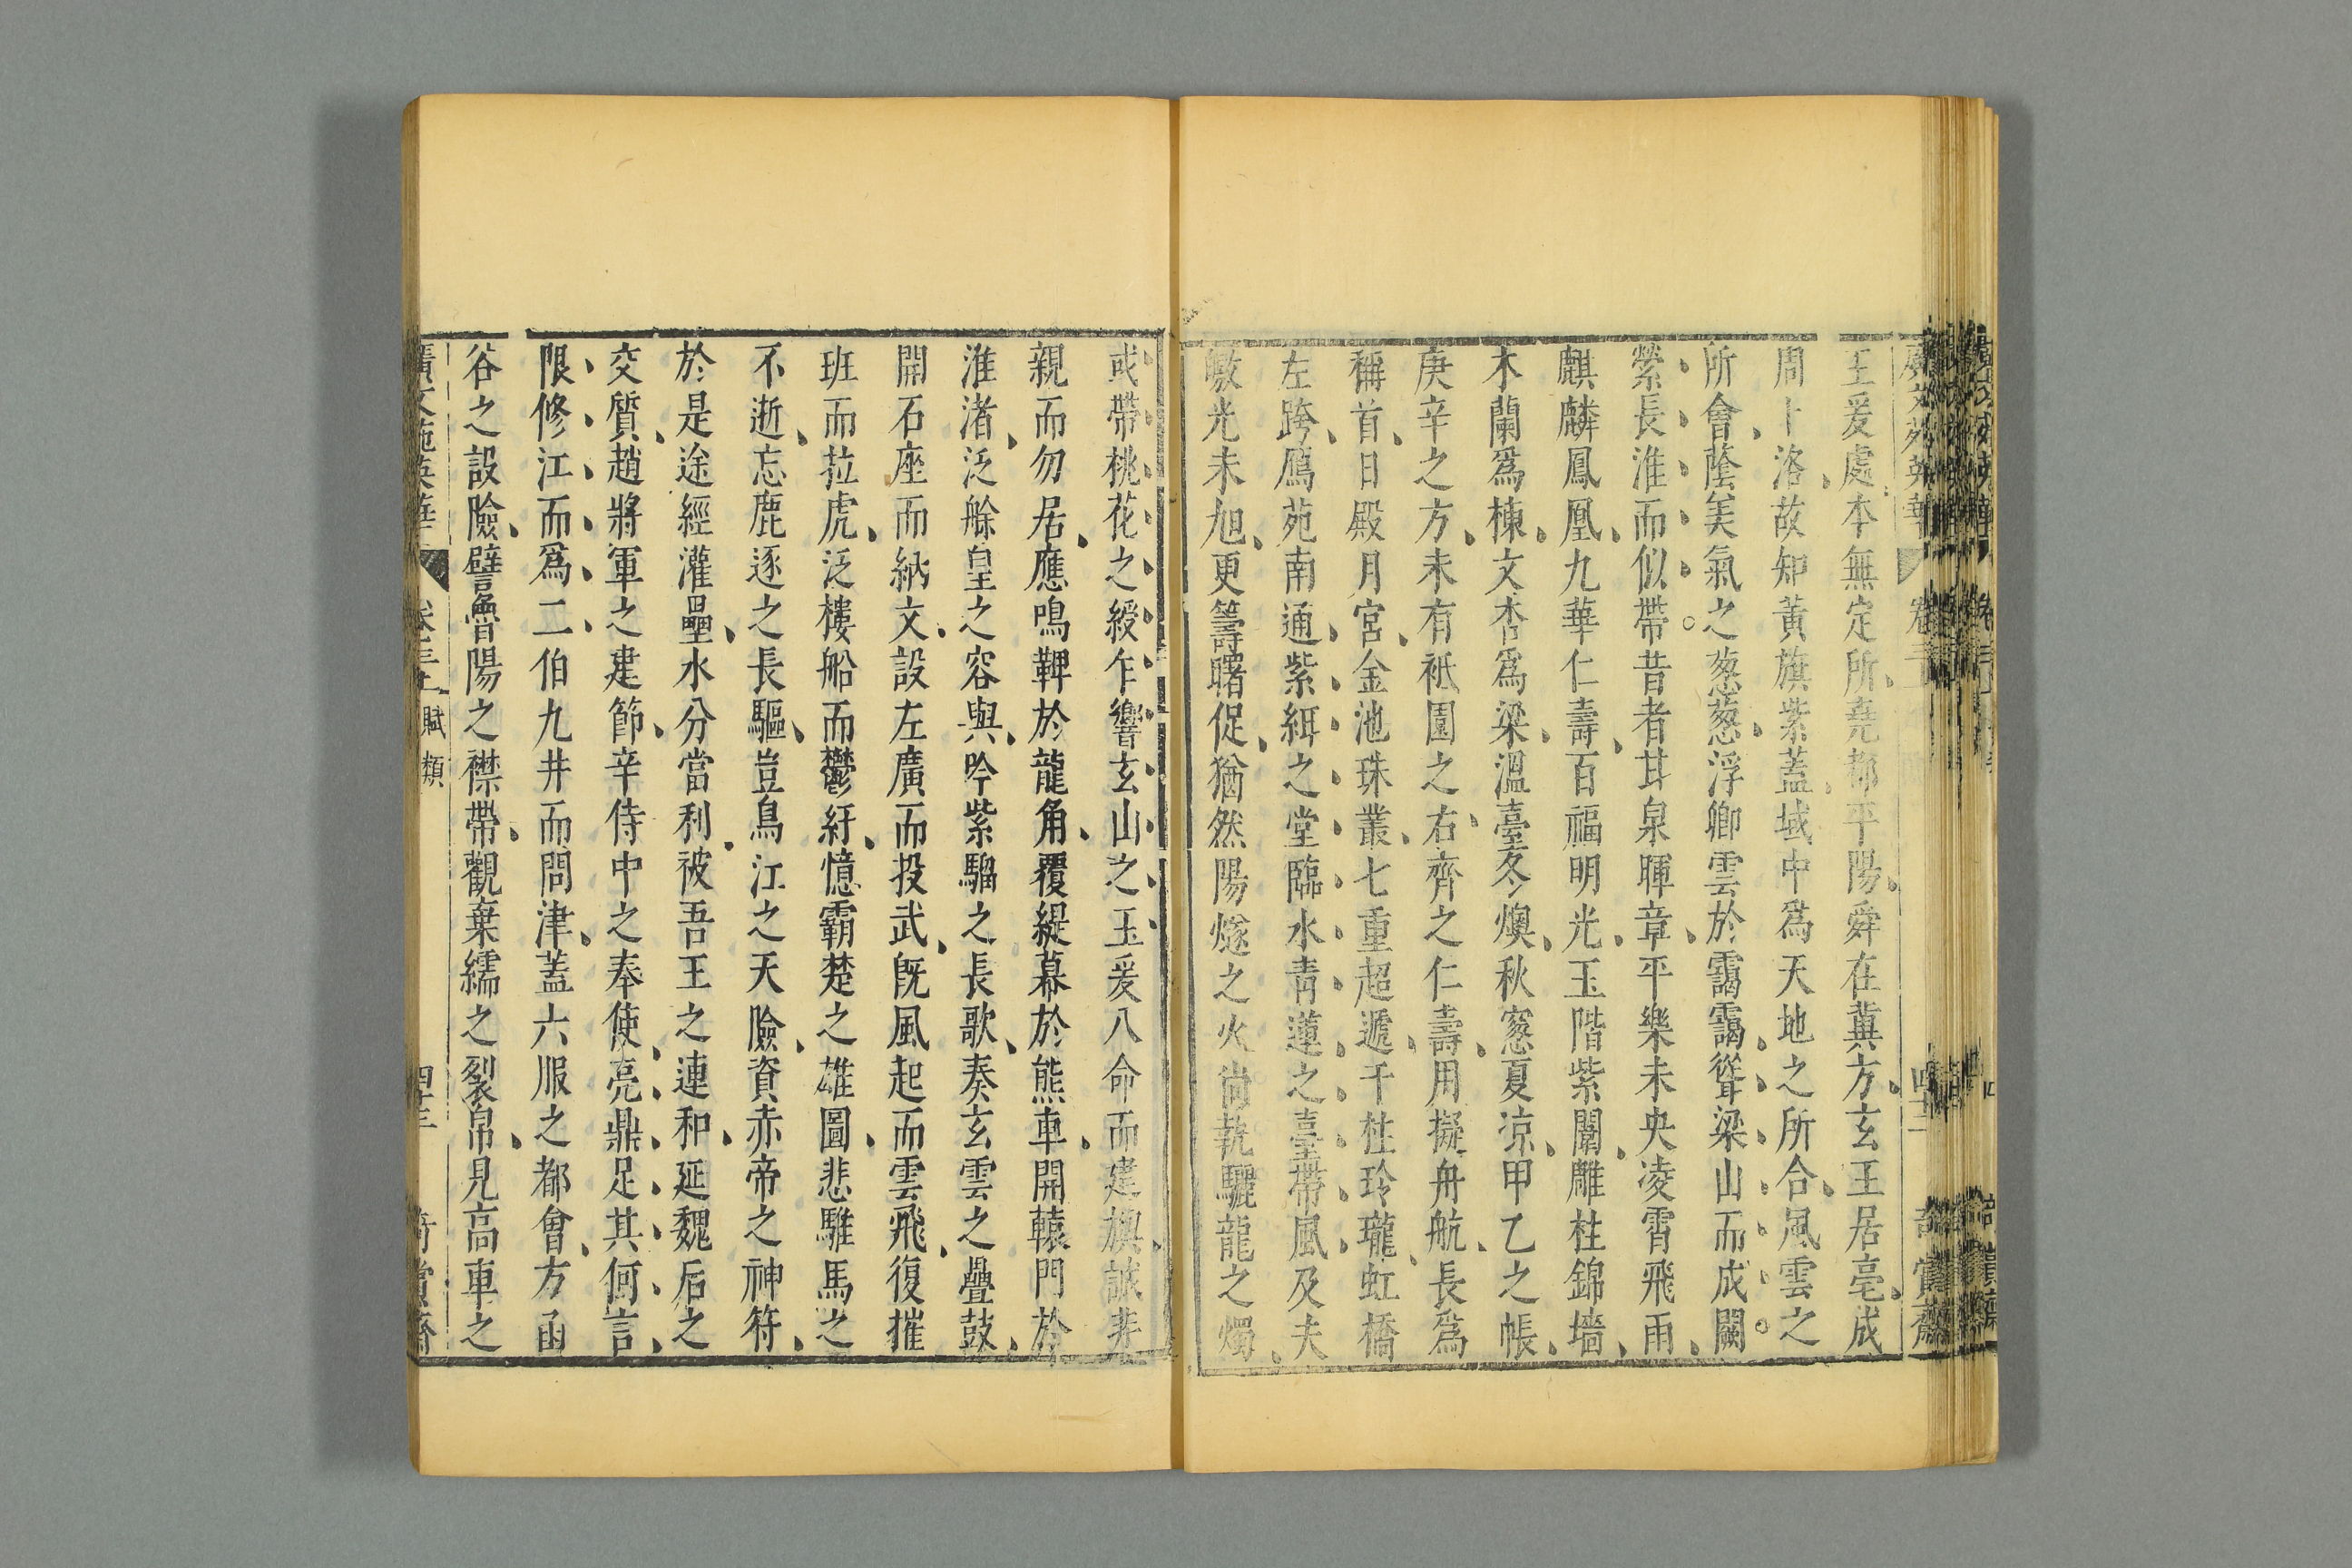 王爰處本無定所堯都平陽舜在冀方玄王居亳成
周卜洛故知黃旗紫蓋域中爲天地之所合風雲之
所會蔭美氣之葱葱浮卿雲於靄靄聳梁山而成闕
縈長淮而似帶昔者甘泉暉章平樂未央凌霄飛雨
麒麟鳳凰九華仁壽百福明光玉階紫闥雕柱錦墻
木蘭爲棟文杏爲梁溫臺冬燠秋窻夏涼甲乙之帳
庚辛之方未有祇園之右齊之仁壽用擬舟航長爲
稱首日殿月宮金池珠叢七重超遞千柱玲瓏虹橋
左跨鴈苑南通紫紺之堂臨水青蓮之臺帶風及夫
皦光未旭更籌曙促猶然陽燧之火尚執驪龍之燭
或帶桃花之綬乍響玄山之玉爰八命而建旟誠非
親而勿居應鳴鞞於龍角覆緹幕於熊車開轅門於
淮渚泛艅皇之容與吟紫騮之長歌奏玄雲之疊鼓
開石座而納文設左廣而投武旣風起而雲飛復摧
班而菈虎泛樓船而鬱紆憶霸楚之雄圖悲騅馬之
不逝忘鹿逐之長驅豈烏江之天險資赤帝之神符
於是途經灌壘水分當利被吾王之連和延魏后之
交質趙將軍之建節辛侍中之奉使亮鼎足其何言
限修江而爲二伯九井而問津蓋六服之都會方函
谷之設險譬魯陽之襟帶觀棄繻之裂帛見高車之
廣文苑英華 卷二十 賦類 四十三 奇賞齋